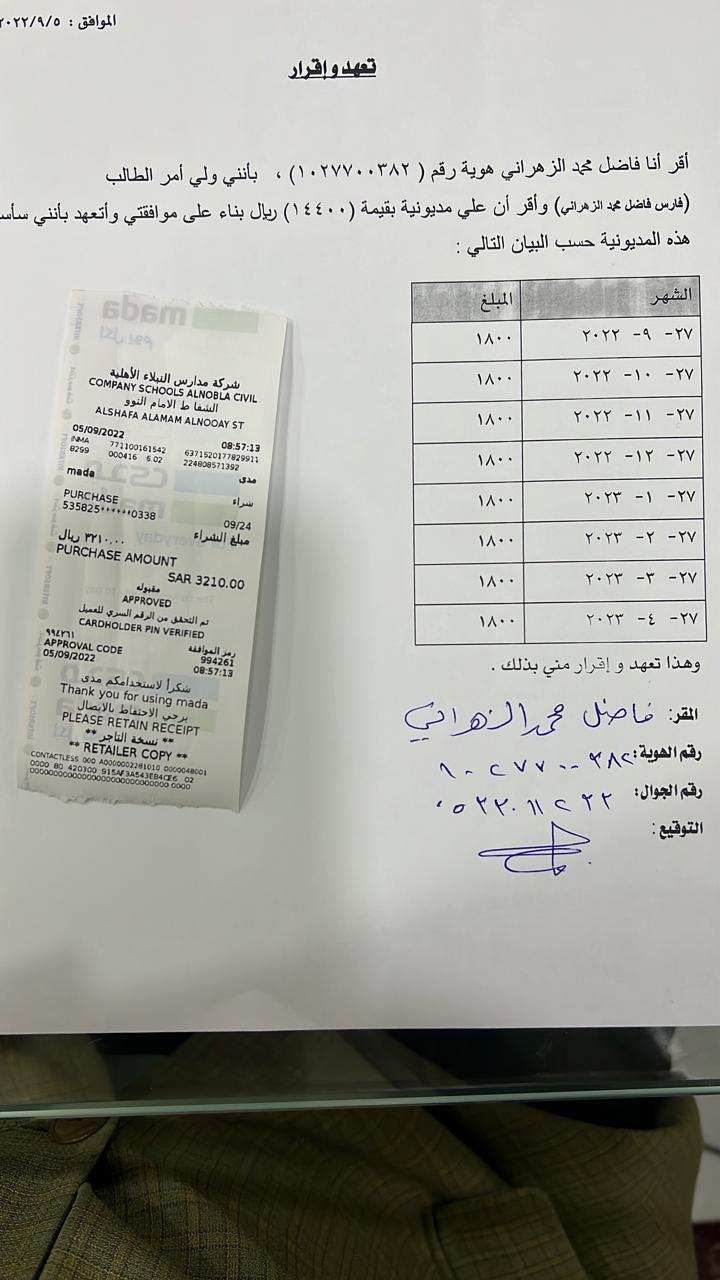 الموافق : ٢٠٢٢/٩/٥
تعهد وإقرار
أقر أنا فاضل محمد الزهراني هوية رقم ( ١٠٢٧٧٠٠٣٨٢) ، بأنني ولي أمر الطالب
(فارس فاضل محمد الزهراني) وأقر أن علي مديونية بقيمة (١٤٤٠٠) ريال بناء على موافقتي وأتعهد بأنني
هذه المديونية حسب البيان التالي :
الشهر المبلغ
٢٧- ٩- ٢٠٢٢ ١٨٠٠
٢٧- ١٠- ٢٠٢٢ ١٨٠٠
٢٧- ١١- ٢٠٢٢ ١٨٠٠
٢٧- ١٢- ٢٠٢٢ ١٨٠٠
٢٧- ١- ٢٠٢٣ ١٨٠٠
٢٧- ٢- ٢٠٢٣ ١٨٠٠
٢٧- ٣- ٢٠٢٣ ١٨٠٠
٢٧- ٤- ٢٠٢٣ ١٨٠٠
وهذا تعهد و إقرار مني بذلك .
المقر: فاضل محمد الزهراني
رقم الهوية: ١٠٢٧٧٠٠٣٨٢
رقم الجوال:
التوقيع :
شركة مدارس النبلاء الأهلية
COMPANY SCHOOLS ALNOBLA CIVIL
الشفا ط الامام النوو
ALSHAFA ALAMAM ALNOOAY ST
05/09/2022 08:57:13
INMA 771100161542 6371520177829911
8299 000416 6.02 224808571392
mada مدى
PURCHASE شراء
535825******0338 09/24
مبلغ الشراء ٣٢١٠.٠٠ ريال
PURCHASE AMOUNT
SAR 3210.00
مقبوله
APPROVED
تم التحقق من الرقم السري للعميل
CARDHOLDER PIN VERIFIED
رمز الموافقة ٩٩٤٢٦١
APPROVAL CODE 994261
05/09/2022 08:57:13
شكراً لاستخدامكم مدى
Thank you for using mada
يرجي الاحتفاظ بالايصال
PLEASE RETAIN RECEIPT
** نسخة التاجر **
** RETAILER COPY **
CONTACTLESS 000 A0000002281010 0000048001
0000 80 420300 915AF3A543EB4CE6 02